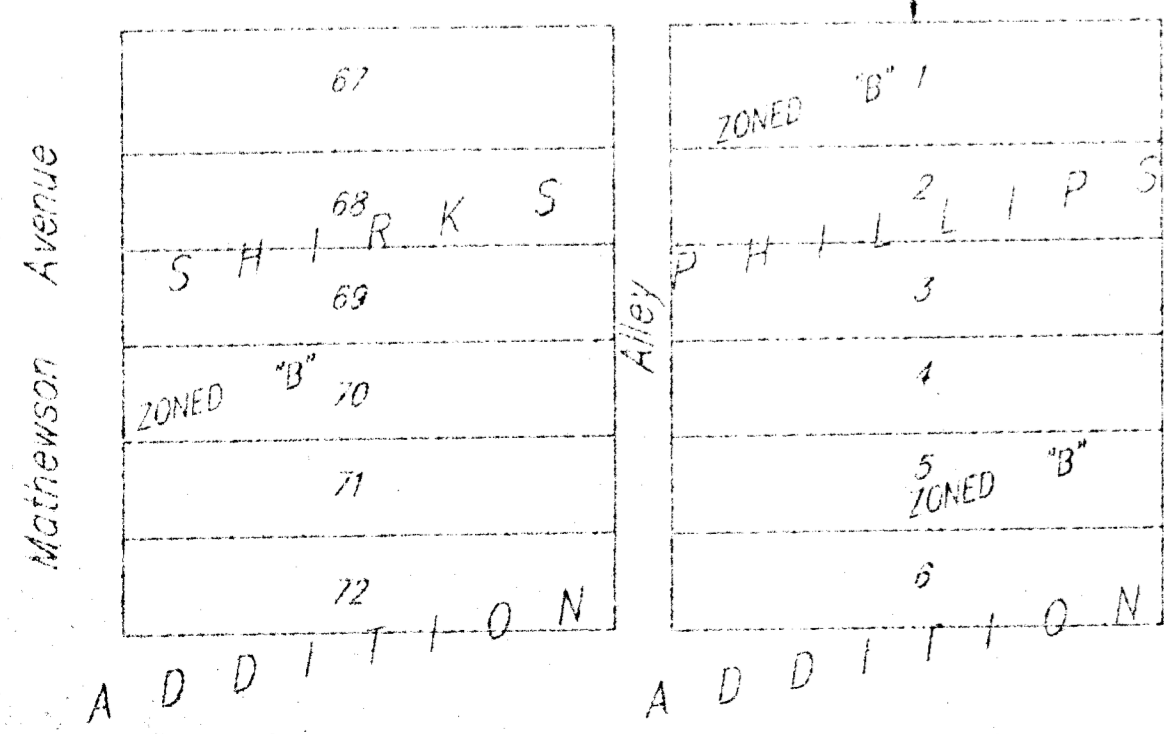 Mathewson Avenue
67
68
SHIRKS
69
ZONED "B"
70
71
72
ADDITION
Alley
ZONED "B"
1
2
PHILLIPS
3
4
5
ZONED "B"
6
ADDITION